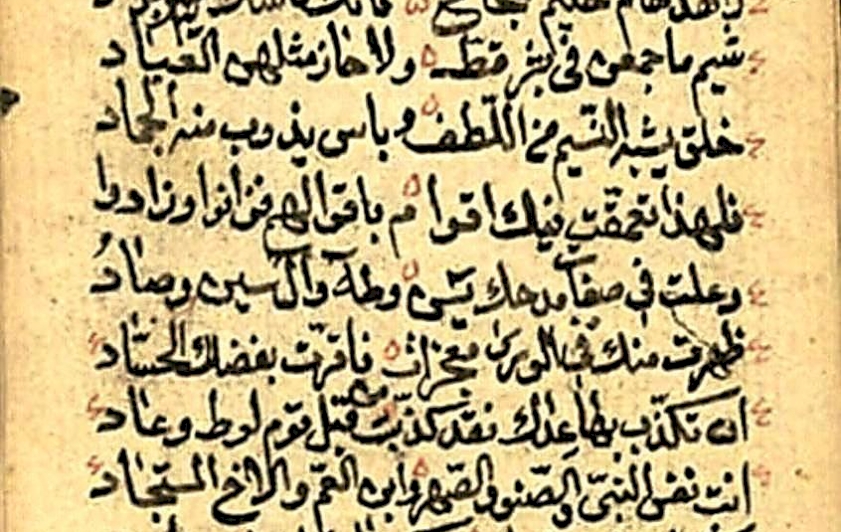 شيم ما جمعن في بشر قط ولا حاز مثلهن العباد
خلق يشبه النسيم من اللطف وباس يذوب منه الجماد
فلهذا تعمقت فيك اقوام باقوالهم فزانوا وزادوا
وعلت في صفات مدحك يس وطه وآل سين وصاد
ظهرت منك في الورى معجزات فاقرت بفضلك الحساد
ان تكذب بها عداك فقد كذبت من قبل قوم لوط وعاد
انت نفس النبي والصنو والصهر وابن العم والاخ المستجاد